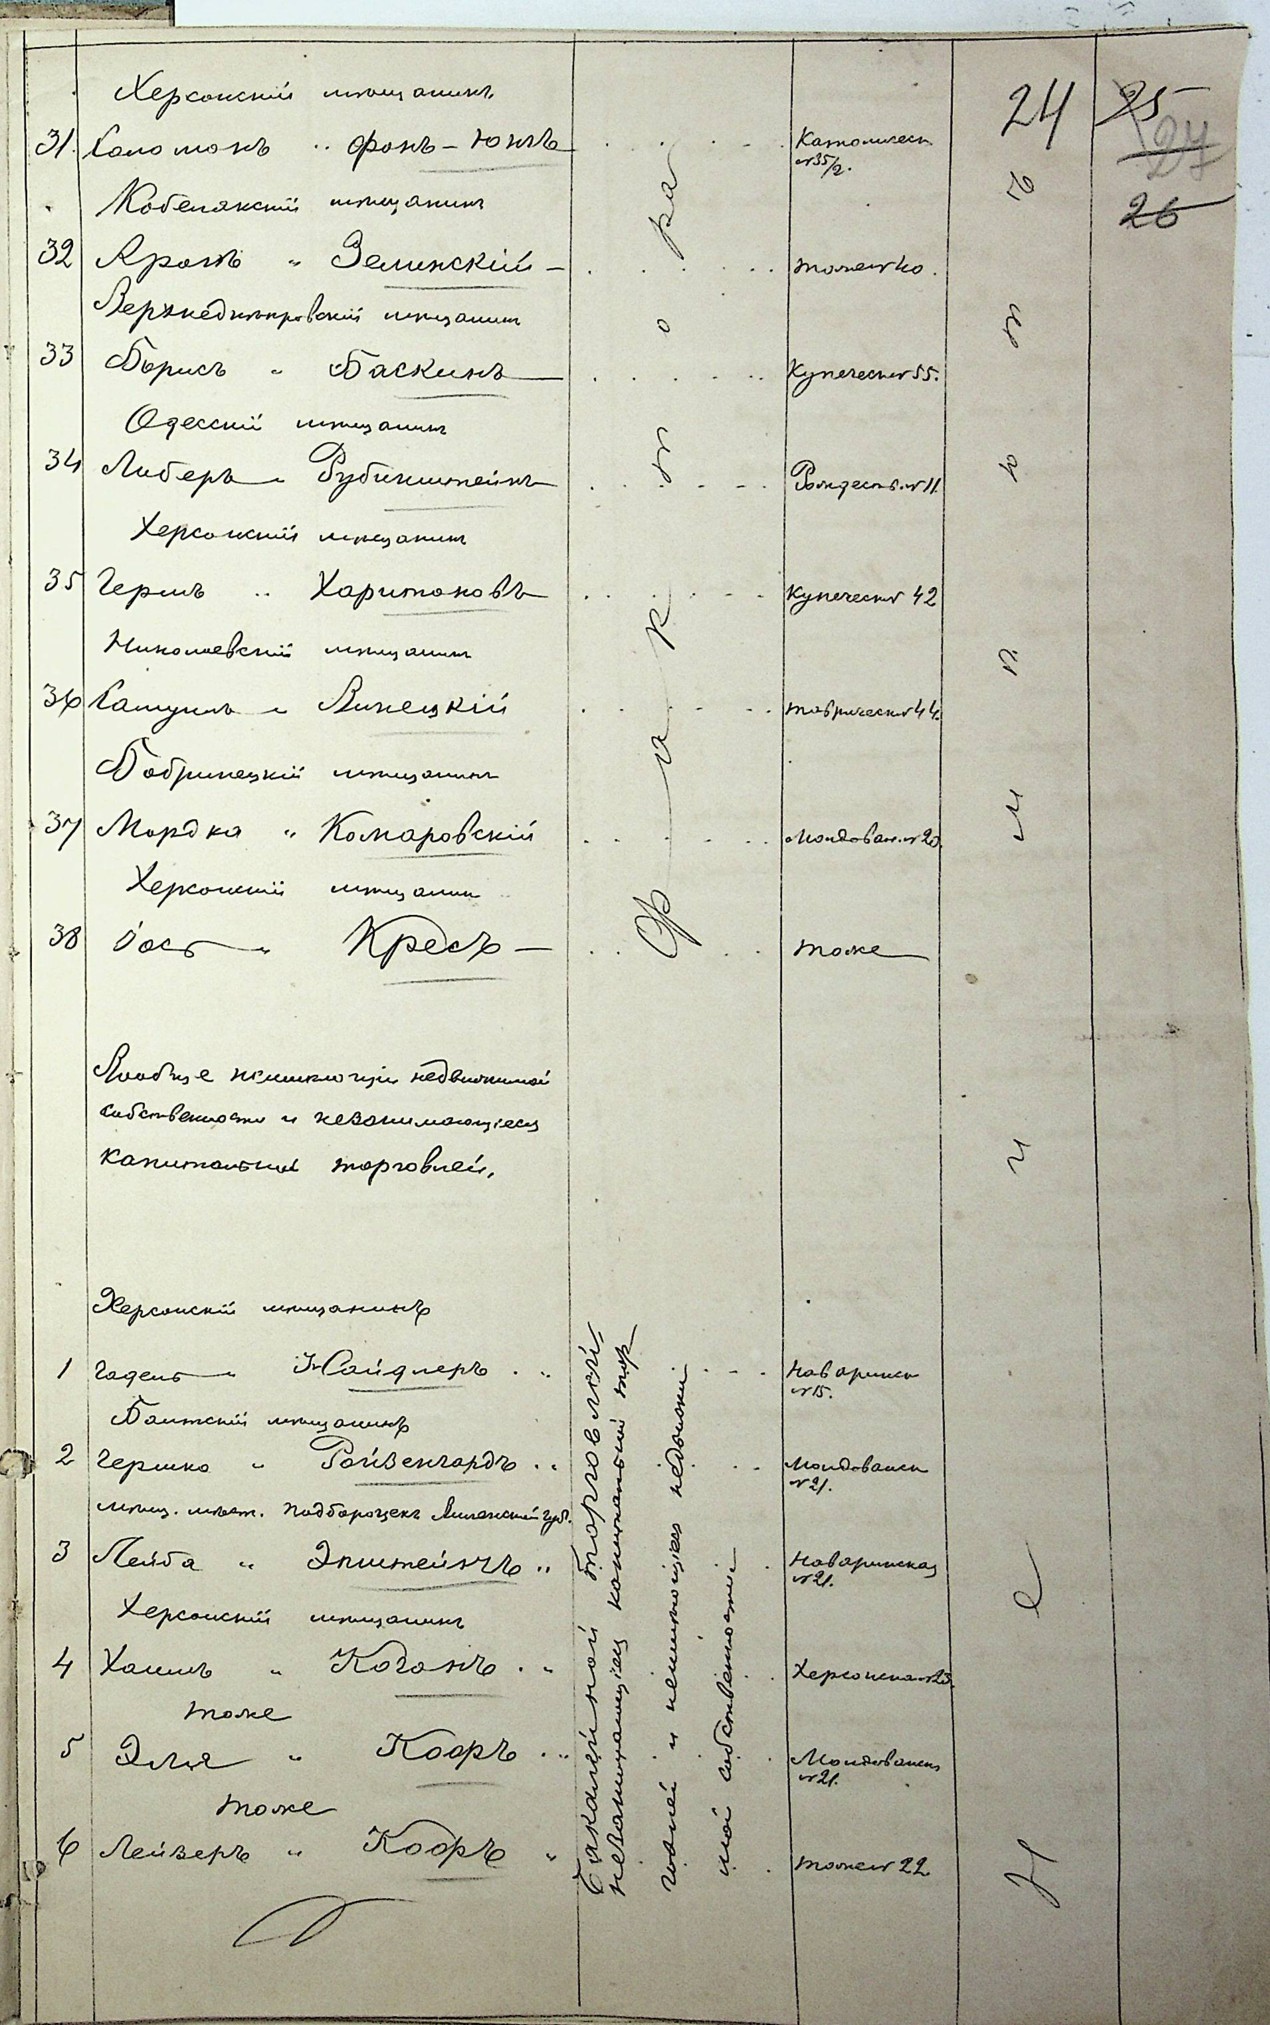 24 25
27
26
Херсонскій мѣщанинъ
31. Соломонъ " фонъ-Юнгъ Католическ №35/2.
Кобелякскій мѣщанинъ
32 Аронъ " Зелинскій — тоже № 40.
Верхнеднѣпровскій мѣщанинъ
33 Борисъ " Баскинъ — Купеческ № 55.
Одесскій мѣщанинъ
34 Либеръ " Рубинштейнъ Рождеств. № 11
Херсонскій мѣщанинъ
35 Гершъ " Харитоновъ Купеческ № 42
Николаевскій мѣщанинъ
36 Самуилъ " Винецкій Таврическ № 44.
Бобринецкій мѣщанинъ
37 Мордка " Комаровскій Молдован. № 20.
Херсонскій мѣщанинъ
38 Іось " Кресъ — тоже
Фрактора
Вообще неимѣющіе недвижимой
собственности и незанимающіеся
капитальной торговлей.
Херсонскій мѣщанинъ
1 Гадель " Зайдлеръ Наваринск № 15.
Балтскій мѣщанинъ
2 Гершко " Ройзенгардъ Молдованск № 21.
мѣщ. мѣст. Подбородзек Виленской губ.
3 Лейба " Эпштейнъ Наваринская № 21.
Херсонскій мѣщанинъ
4 Хаимъ " Коганъ Херсонская № 23.
тоже
5 Эля " Кофъ Молдованск № 21.
тоже
6 Лейзеръ " Кофъ тоже № 22
Бакалейной торговлей
незанимающіеся капитальной тор-
говлей и неимѣющіе недвижи-
мой собственности.
Неимѣютъ